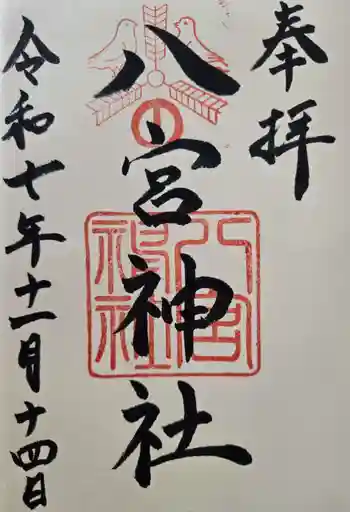 奉拝
八宮神社
八宮
神社
令和七年十一月十四日